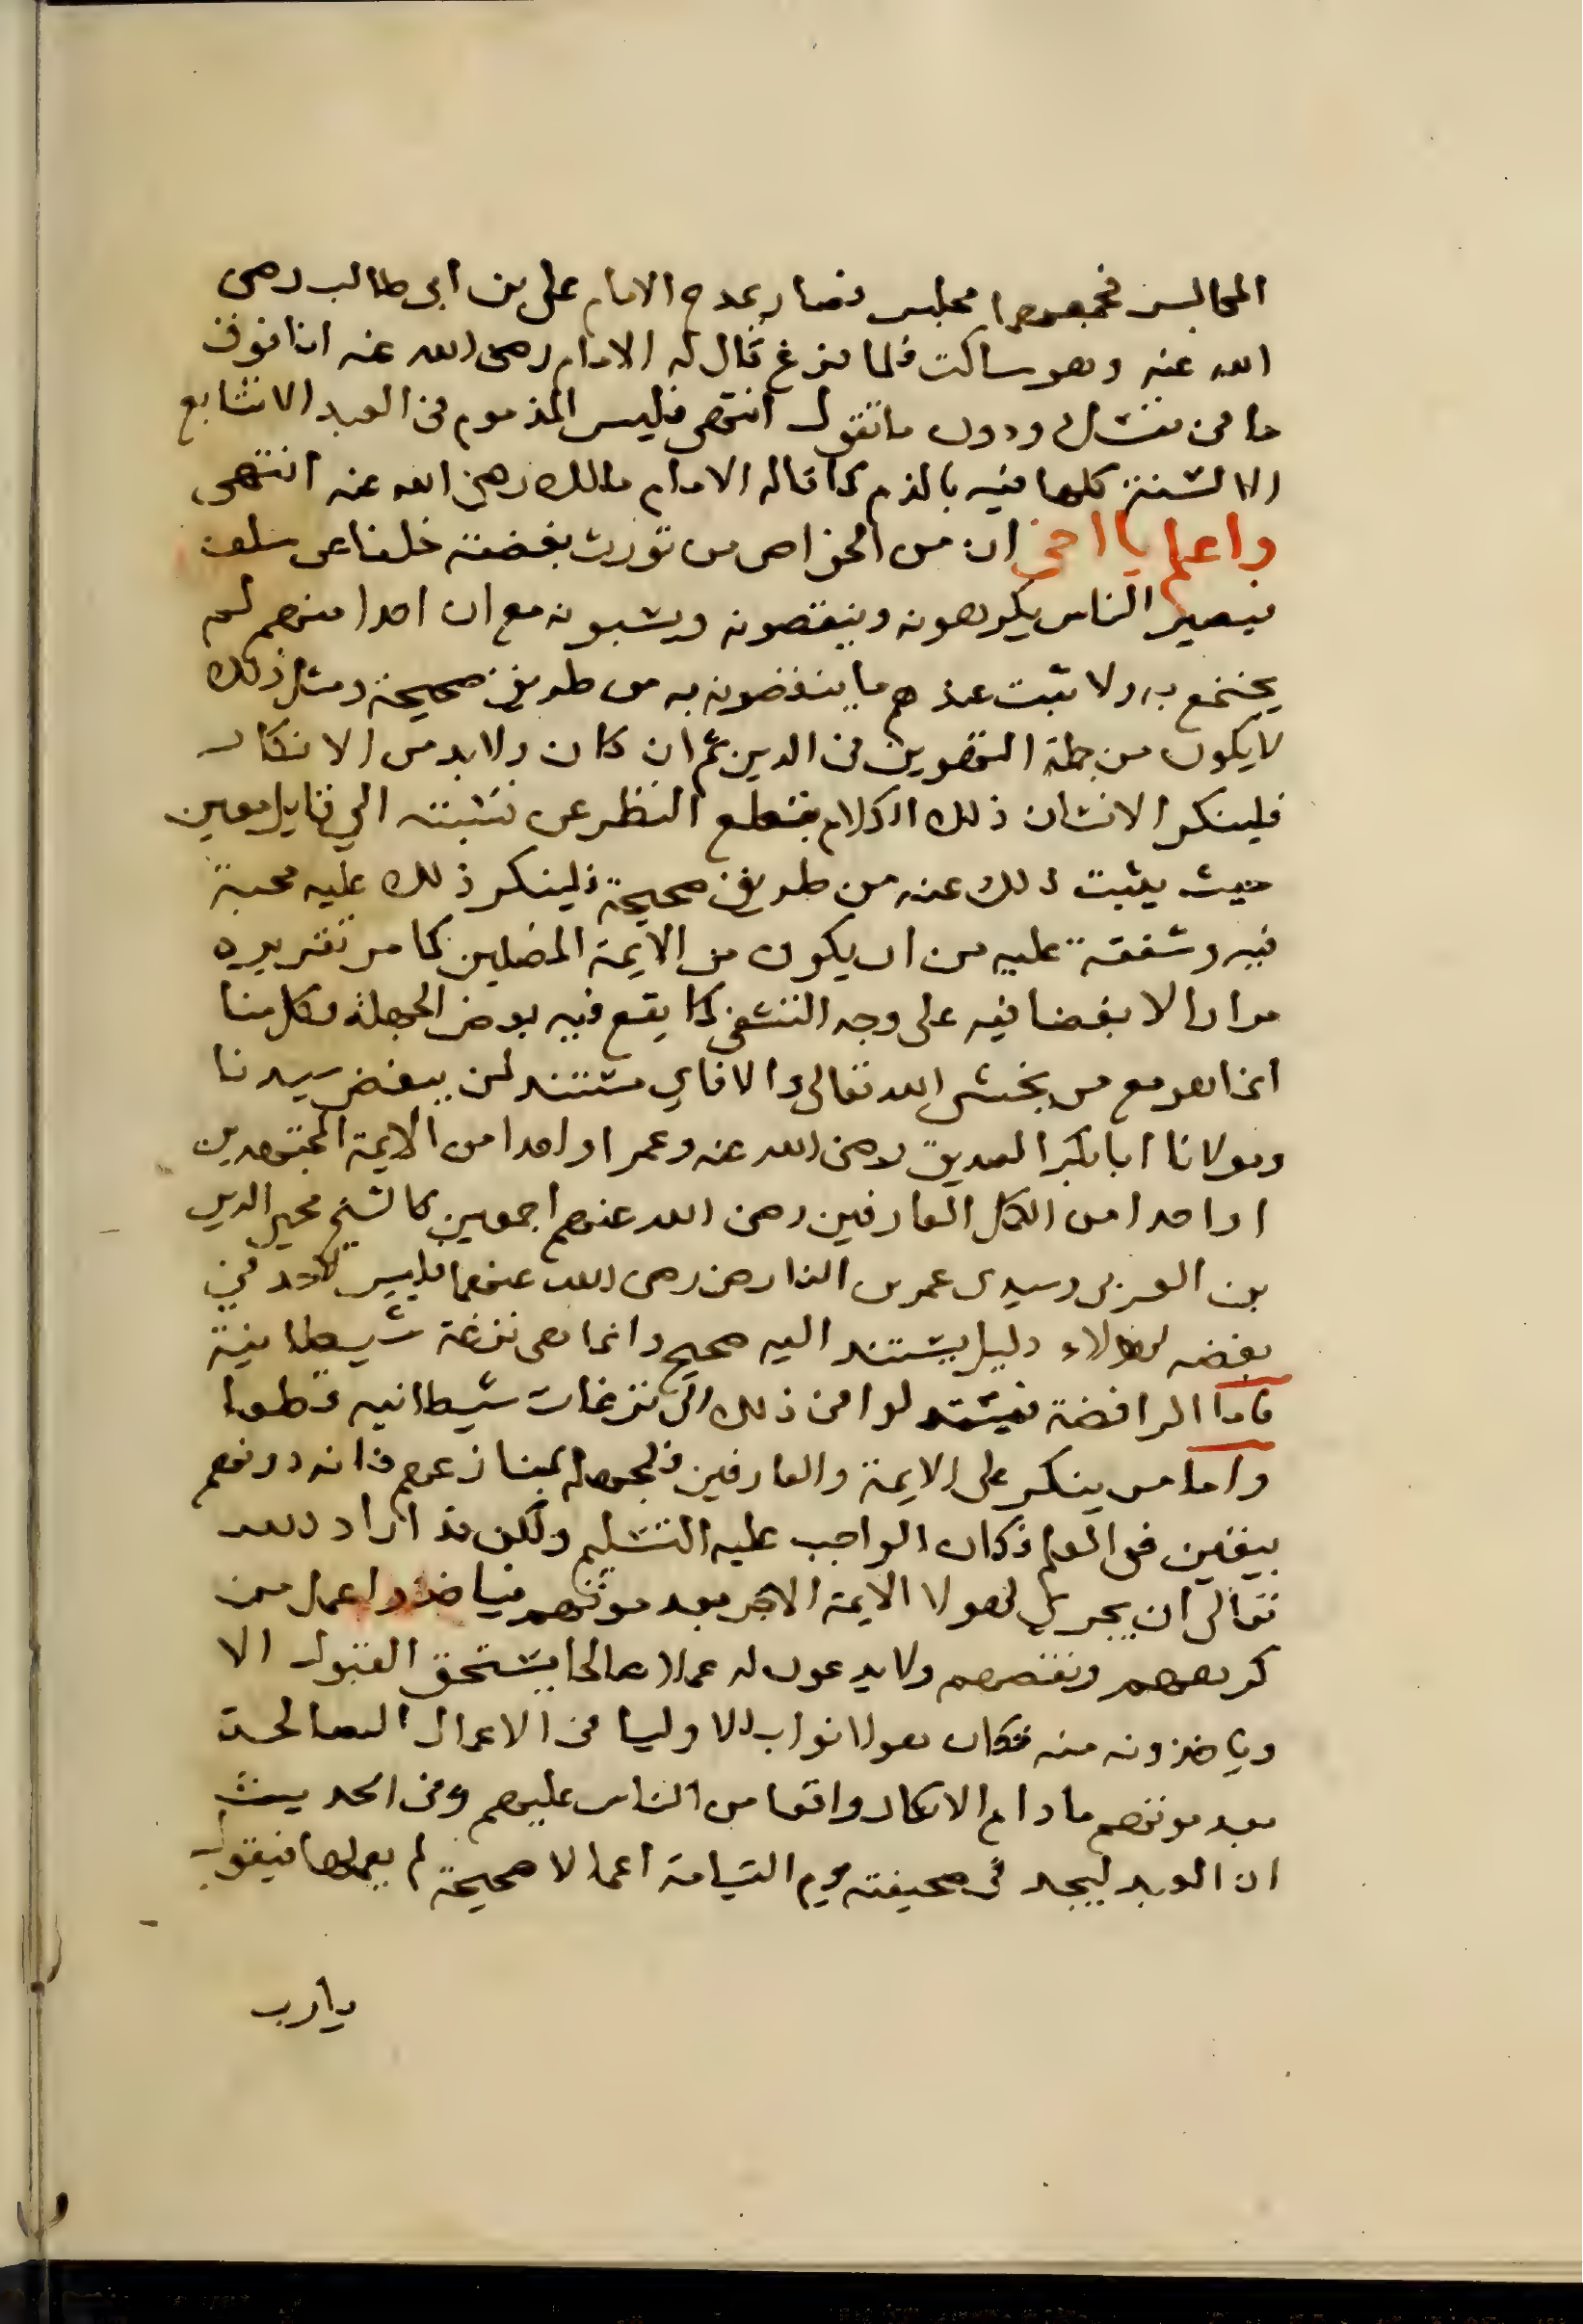 المجالس فجمعهما مجلس فصار يمدح الامام على بن ابى طالب رضى
الله عنه وهو ساكت فلما فرغ قال له الامام رضى الله عنه انا فوق
ما فى نفسك ودون ما تقول انتهى فليس المذموم فى العبد الا تتابع
الالسنة كلها فيه بالذم كما قاله الامام مالك رضى الله عنه انتهى
واعلم يا اخى ان من الخواص من تورث بغضته خلفا عن سلف
فيصير الناس يكرهونه وينقصونه ويسبونه مع ان احدا منهم لم
يجتمع به ولا ثبت عندهم ما ينقصونه به من طريق صحيحة ومثل ذلك
لا يكون من جملة التهوين فى الدين ثم ان كان ولا بد من الانكار
فلينكر الانسان ذلك الكلام بقطع النظر عن نسبته الى قايل معين
حيث يثبت ذلك عنه من طريق صحيحة فلينكر ذلك عليه محبة
فيه وشفقة عليه من ان يكون من الايمة المضلين كما مر تقريره
مرارا لا بغضا فيه على وجه التشفى كما يقع فيه بعض الجهلة وكلامنا
انما هو مع من يخشى الله تعالى والا فاى مستند لمن يبغض سيدنا
ومولانا ابا بكر الصديق رضى الله عنه وعمر او احدا من الايمة المجتهدين
او احدا من الكمل العارفين رضى الله عنهم اجمعين كالشيخ محيى الدين
بن العربى وسيدى عمر بن الفارض رضى الله عنهما فليس لاحد فى
بغضه لهولاء دليل يستند اليه صحيح وانما هى نزغة شيطانية
فاما الرافضة فيستندوا فى ذلك الى نزغات شيطانيه قطعا
واما من ينكر على الايمة والعارفين فلجهله بمنازعهم فانه دونهم
بيقين فى العلم فكان الواجب عليه التسليم ولكن قد اراد الله
تعالى ان يجرى لهولا الايمة الاجر بعد موتهم فياخذوا اعمال من
كرههم ونقصهم ولا يدعون له عملا صالحا يستحق القبول الا
وياخذونه منه فكان هولا نواب الاوليا فى الاعمال الصالحة
بعد موتهم ما دام الانكار واقعا من الناس عليهم وفى الحديث
ان العبد ليجد فى صحيفته يوم القيامة اعمالا صحيحة لم يعملها فيقول
يارب